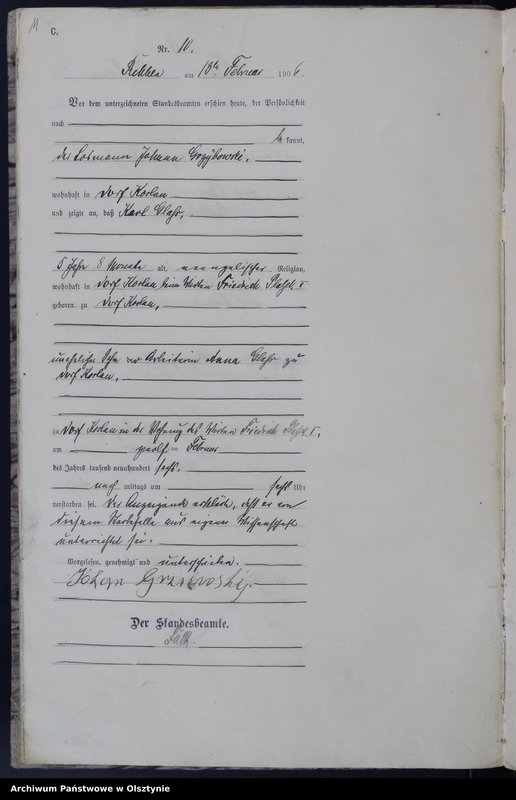 11
C.
Nr. 10.
am 13ten Februar 1906.
Vor dem unterzeichneten Standesbeamten erschien heute, der Persönlichkeit
nach
be kannt,
der Losmann Johann Grzybowski,
wohnhaft in Dorf Korlan
und zeigte an, daß Karl
5 Jahre 8 Monate alt, evangelischer Religion,
wohnhaft in Dorf Korlan beim Wirten Friedrich
geboren zu Dorf Korlan,
unehelicher Sohn der Arbeiterin Anna zu
Dorf Korlan,
zu Dorf Korlan in der Wohnung des Wirten Friedrich
am zwölf ten Februar
des Jahres tausend neunhundert sechs.
nach mittags um sechs Uhr
verstorben sei. Der Anzeigende erklärte, daß er von
diesem Sterbefalle aus eigener Wissenschaft
unterrichtet sei.
Vorgelesen, genehmigt und unterschrieben.
Der Standesbeamte.
Archiwum Państwowe w Olsztynie